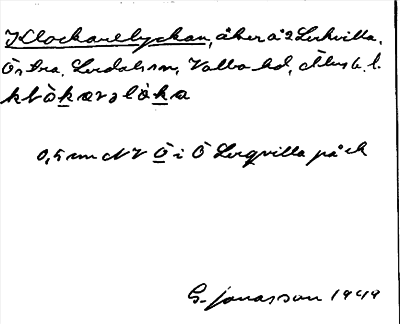 Klockarelyckan, åker å 2 Lerkvilla,
Östra, Lerdals sn, Valbo hd, Älvsb. l.
0,5 mm NV Ö i Ö Lerqvilla på ek
G. Jonasson 1949